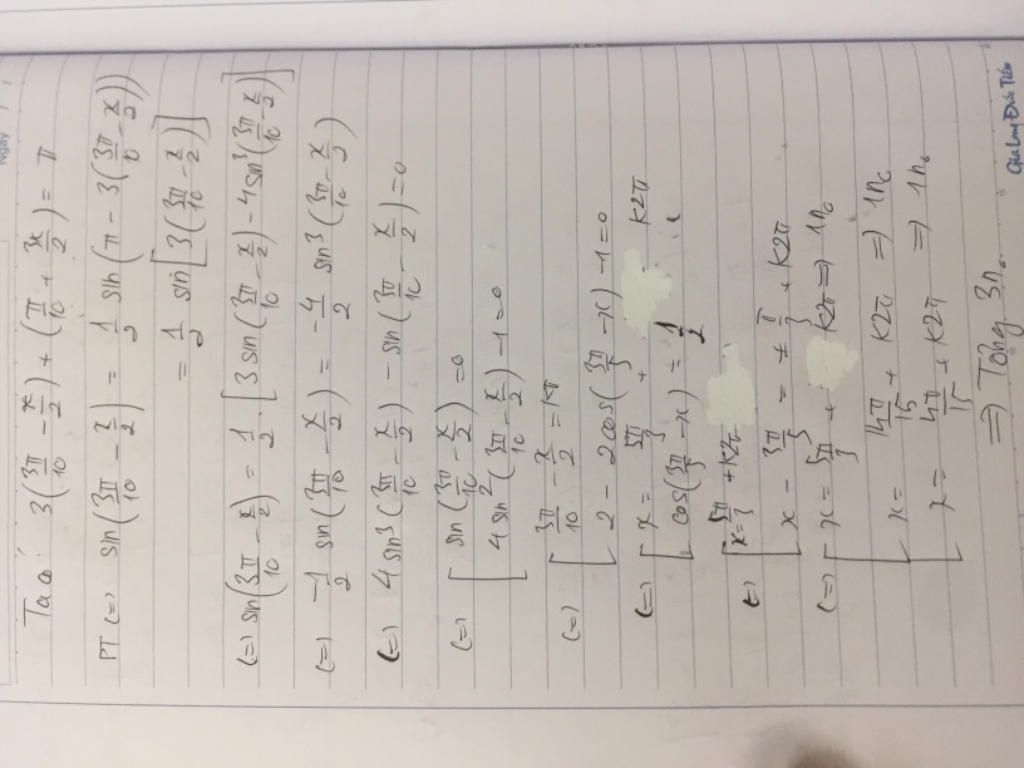 Ta có: 3(3π/10 - x/2) + (π/10 + 3x/2) = π
PT (=) sin(3π/10 - x/2) = 1/2 sin(π - 3(3π/10 - x/2))
= 1/2 sin[3(3π/10 - x/2)]
(=) sin(3π/10 - x/2) = 1/2 . [3 sin(3π/10 - x/2) - 4 sin³(3π/10 - x/2)]
(=) -1/2 sin(3π/10 - x/2) = -4/2 sin³(3π/10 - x/2)
(=) 4 sin³(3π/10 - x/2) - sin(3π/10 - x/2) = 0
(=) [ sin(3π/10 - x/2) = 0
4 sin²(3π/10 - x/2) - 1 = 0
(=) [ 3π/10 - x/2 = kπ
2 - 2cos(3π/5 - x) - 1 = 0
(=) [ x = 3π/5 + k2π
cos(3π/5 - x) = 1/2
(=) [ x = 3π/5 + k2π
x - 3π/5 = ± π/3 + k2π
(=) [ x = 3π/5 + k2π => 1 no
x = 14π/15 + k2π => 1 no
x = 4π/15 + k2π => 1 no
=> Tổng 3 no.
Ngày